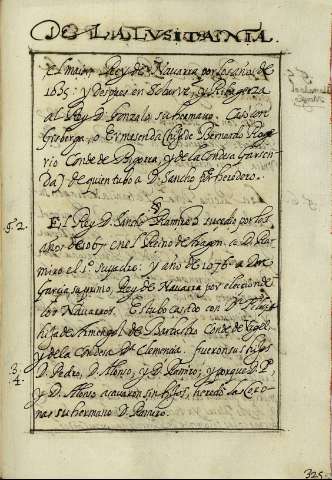 DE LA LVSITANIA.
el maior, Rey de Navarra por los años de
1035: y despues en Sobarve, y Ribagorza
al Rey D. Gonzalo su hermano. Casò con
Gisberga, o Ermesenda (hija de Bernardo Roge
rio Conde de Bigorra, y de la Condesa Garsen
da) de quien tubo a D. Sancho heredero.
§
§. 2.
El Rey D. Sancho Ramirez sucedio por los
años de 1067 en el Reino de Aragon a D. Ra
miro el 1º su padre: y año de 1076 a Don
Garcia su primo, Rey de Navarra por eleccion de
los Navarros. Estubo casado con
hija de Armengol de Barbastro Conde de Vrgel
y de la Condesa Dª Clemencia. fueron sus hijos
D. Pedro, D. Alonso, y D. Ramiro; y porque D. P.
3.
4.
y D. Alonso acavaron sin hijos, heredò la Coro
na su hermano D. Ramiro.
325